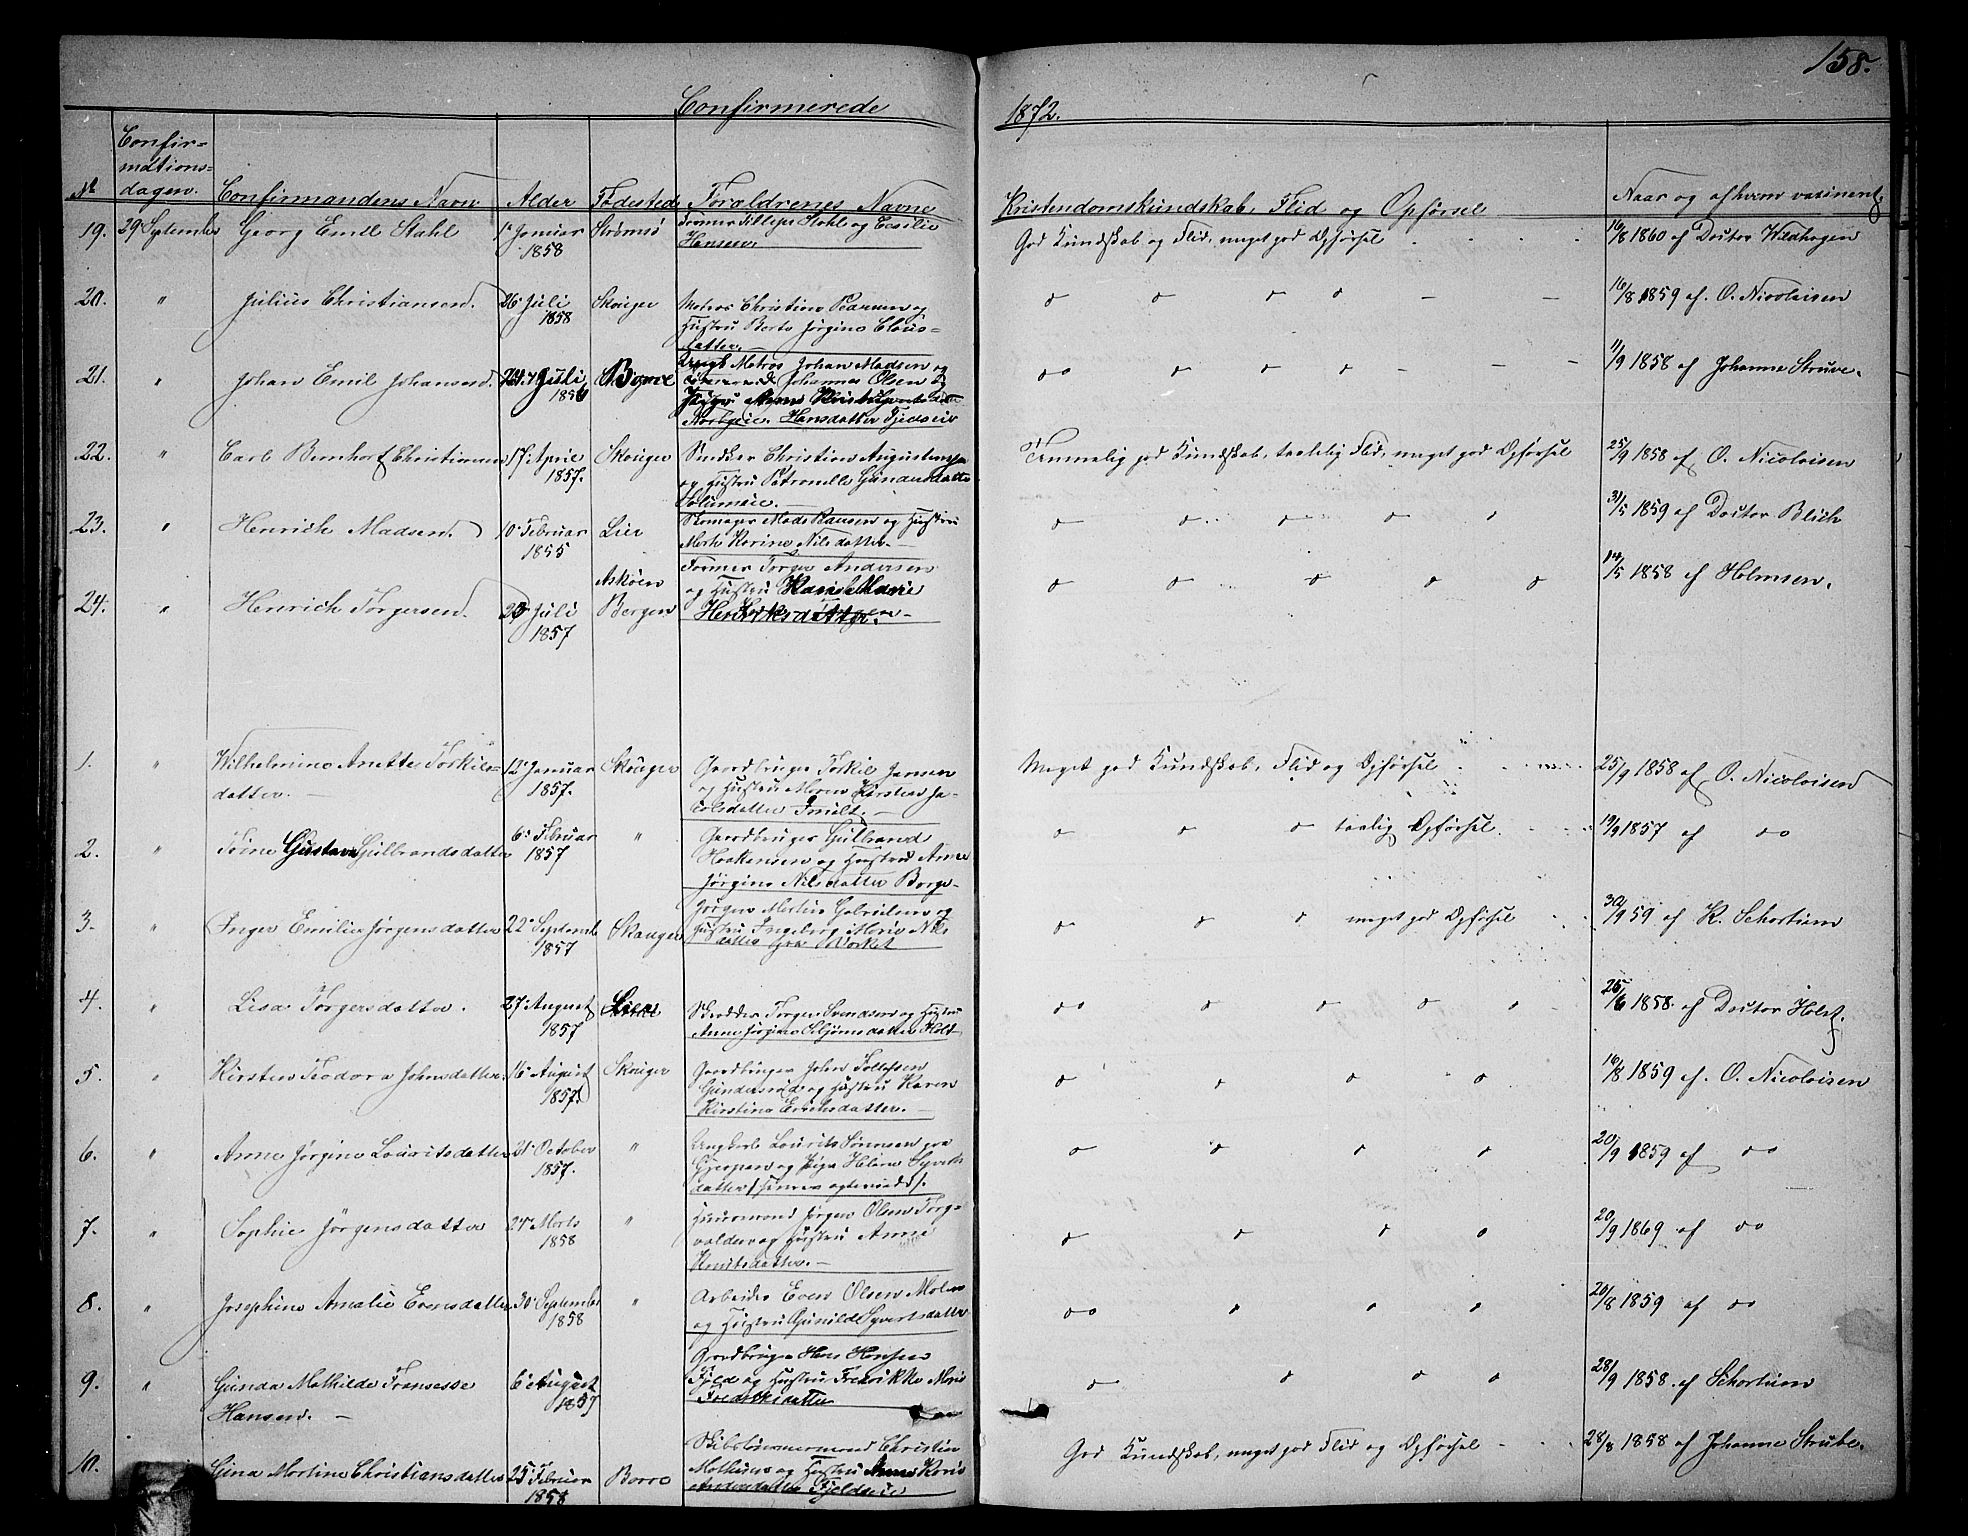 158.
Confirmerede
1872.
No
Confir-
mations-
dagen.
Confirmandens Navn
Alder
Fødested
Forældrenes Navne
Kristendomskundskab, Flid og Opførsel
Naar og af hvem vaxineret,
19. 29 September Georg Emil Stahl 1 Januar 1858 Strømsø
Stahl og Cecilie
Hansen.
God Kundskab og Flid, meget god Opførsel
16/8 1860 af Doctor Wildhagen
20. " Julius Christiansen. 26 Juli 1858 Skouger
Matros Christian og
Hustru Berte Jørgine Claus-
datter.
o o o o — —
16/8 1859 af O. Nicolaisen
21. " Johan Emil Johansen. Juli Borre
Matros Johan Madsen og
Johannes Olsen
Hansdatter
oo o o o — —
11/9 1858 af Johanne Struve.
22. " Carl Bernhart Christiansen 17 April 1857. Skouger
Snedker Christian Augustensen
og Hustru Petronelle Gundersdatter
Temmelig god Kundskab, taalelig Flid, meget god Opførsel
25/9 1858 af O. Nicolaisen
23. " Henrich Madsen. 10 Februar 1855 Lier
Skomager Mads Paulsen og Hustru
Karine Nilsdatter.
o o o o o
31/5 1859 af Doctor Blich
24. " Henrich Torgersen. Juli 1857 Askøen Bergen
Former Torger Andersen
og Hustru Marie
o o o o o
14/5 1858 af Holmsen.
1. " Wilhelmine Anette Torkils-
datter. 12 Januar 1857. Skouger
Gaardbruger Torkil Jensen
og Hustru Maren Kirsten Ja-
cobsdatter
Meget god Kundskab, Flid og Opførsel
25/9 1858 af O. Nicolaisen
2. " Trine Gustava Gulbrandsdatter 6 Februar 1857 "
Gaardbruger Gulbrand
Haakensen og Hustru Anne
Jørgine Nilsdatter Borge
o o o taalig Opførsel.
19/9 1857 af oo
3. " Inger Emilie Jørgensdatter 22 September 1857 Skouger
Jørgen Martin Gabrielsen og
Hustru Ingeborg Marie Nils
datter
o o o meget god Opførsel
30/9 59 af K. Schartum
4. " Lisa Torgersdatter. 27 August 1857 Lier
Skrædder Torger Svendsen og Hustru
Anne Jørgine
oo o o o o
25/6 1858. af Doctor Holst.
5. " Kirsten Teodora Johnsdatter. 16 August 1857. Skouger
Gaardbruger John Tollefsen
Gundersrud og Hustru Karen
Kirstine Erichsdatter.
o o o o
16/8 1859 af O. Nicolaisen
6. " Anne Jørgine Lauritsdatter 21 October 1857. "
Ungkarl Laurits Sørensen
og Pige Helene Syverts
datter
o o o o
20/9 1859 af oo
7. " Sophie Jørgensdatter 24 Marts 1858 "
Huusmand Jørgen Olsen
og Hustru Anne
Knutsdatter.
o o o o
20/9 1869 af oo
8. " Josephine Amalie Evensdatter 30 September 1858 "
Arbeider Even Olsen
og Hustru Gunilde Syvertsdatter
oo o o o
20/8 1859 af oo
9. " Gunda Mathilde Fransesse
Hansen. 6 August 1857
Gaardbruger Hans Hansen
Fjeld og Hustru Fredrikke Marie
Fredriksdatter
o o o o
28/9 1858 af Schartum
10. Gina Martine Christiansdatter 25 Februar 1858 Borre
Skibstømmermand Christian
Mathias og Hustru Anne Karie
Andersdatter
God Kundskab, meget god Flid og Opførsel
28/8 1858 af Johanne Strube.